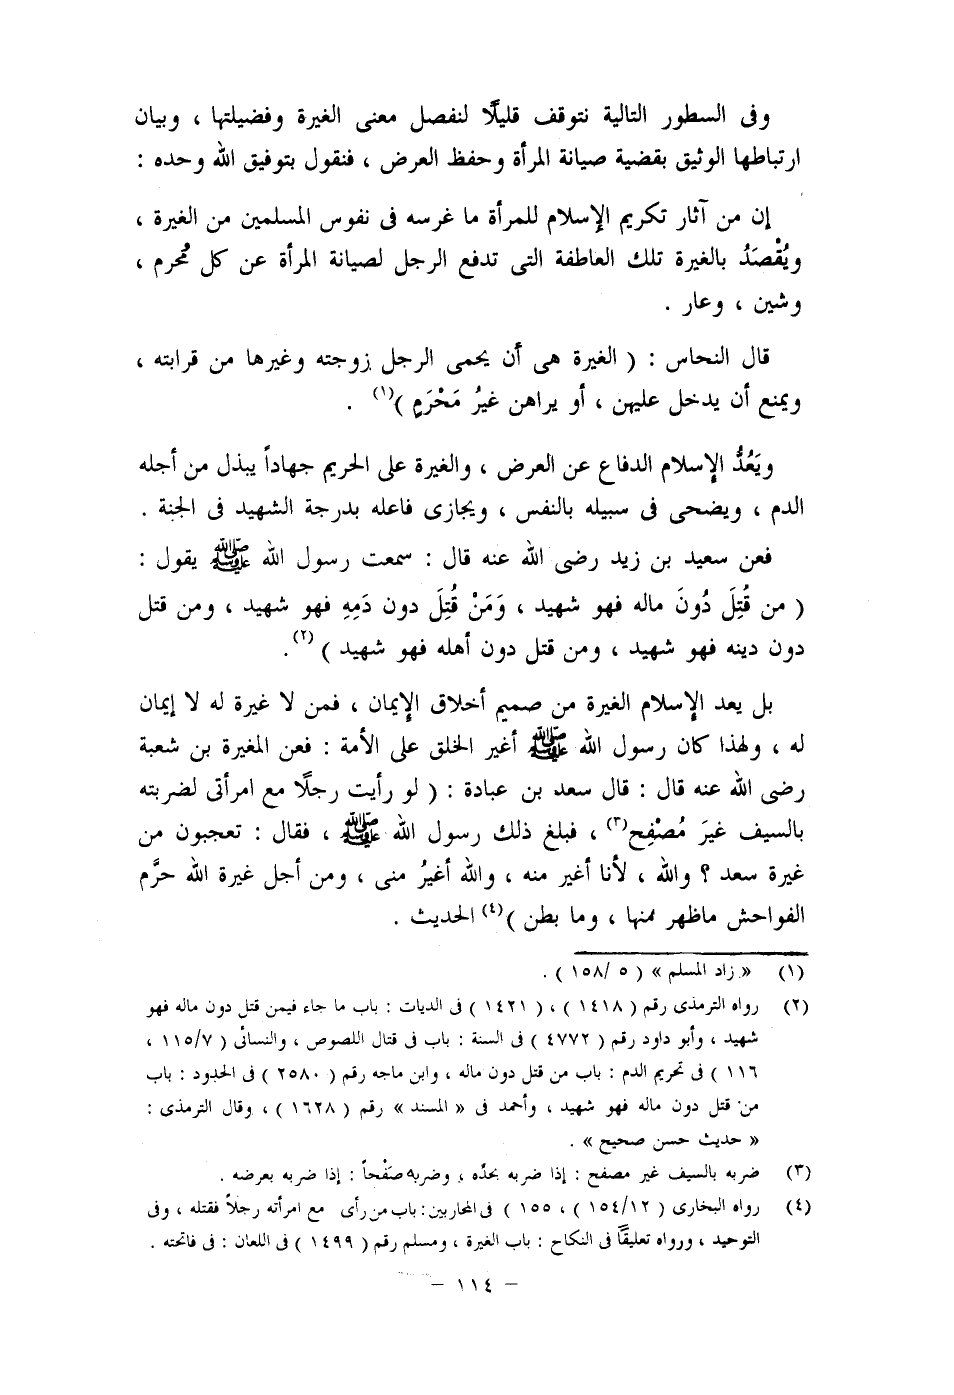 وفى السطور التالية نتوقف قليلًا لنفصل معنى الغيرة وفضيلتها ، وبيان
ارتباطها الوثيق بقضية صيانة المرأة وحفظ العرض ، فنقول بتوفيق الله وحده :
إن من آثار تكريم الإسلام للمرأة ما غرسه فى نفوس المسلمين من الغيرة ،
ويُقْصَدُ بالغيرة تلك العاطفة التى تدفع الرجل لصيانة المرأة عن كل مُحرم ،
وشين ، وعار .
قال النحاس : ( الغيرة هى أن يحمى الرجل زوجته وغيرها من قرابته ،
ويمنع أن يدخل عليهن ، أو يراهن غيرُ مَحْرَمٍ )(١) .
ويَعُدُّ الإسلام الدفاع عن العرض ، والغيرة على الحريم جهاداً يبذل من أجله
الدم ، ويضحى فى سبيله بالنفس ، ويجازى فاعله بدرجة الشهيد فى الجنة .
فعن سعيد بن زيد رضى الله عنه قال : سمعت رسول الله ﷺ يقول :
( من قُتِلَ دُونَ ماله فهو شهيد ، وَمَنْ قُتِلَ دون دَمِهِ فهو شهيد ، ومن قتل
دون دينه فهو شهيد ، ومن قتل دون أهله فهو شهيد )(٢).
بل يعد الإسلام الغيرة من صميم أخلاق الإيمان ، فمن لا غيرة له لا إيمان
له ، ولهذا كان رسول الله ﷺ أغير الخلق على الأمة : فعن المغيرة بن شعبة
رضى الله عنه قال : قال سعد بن عبادة : ( لو رأيت رجلًا مع امرأتى لضربته
بالسيف غيرَ مُصْفِح(٣) ، فبلغ ذلك رسول الله ﷺ ، فقال : تعجبون من
غيرة سعد ؟ والله ، لأنا أغير منه ، والله أغيرُ منى ، ومن أجل غيرة الله حرَّم
الفواحش ماظهر منها ، وما بطن )(٤) الحديث .
(١) « زاد المسلم » ( ٥ /١٥٨ ) .
(٢) رواه الترمذى رقم ( ١٤١٨ ) ، ( ١٤٢١ ) فى الديات : باب ما جاء فيمن قتل دون ماله فهو
شهيد ، وأبو داود رقم ( ٤٧٧٢ ) فى السنة : باب فى قتال اللصوص ، والنسائى ( ١١٥/٧ ،
١١٦ ) فى تحريم الدم : باب من قتل دون ماله ، وابن ماجه رقم ( ٢٥٨٠ ) فى الحدود : باب
من قتل دون ماله فهو شهيد ، وأحمد فى « المسند » رقم ( ١٦٢٨ ) ، وقال الترمذى :
« حديث حسن صحيح » .
(٣) ضربه بالسيف غير مصفح : إذا ضربه بحدّه ، وضربه صَفْحاً : إذا ضربه بعرضه .
(٤) رواه البخارى ( ١٥٤/١٢ ) ، ١٥٥ ) فى المحاربين : باب من رأى مع امرأته رجلاً فقتله ، وفى
التوحيد ، ورواه تعليقاً فى النكاح : باب الغيرة ، ومسلم رقم ( ١٤٩٩ ) فى اللعان : فى فاتحته .
– ١١٤ –